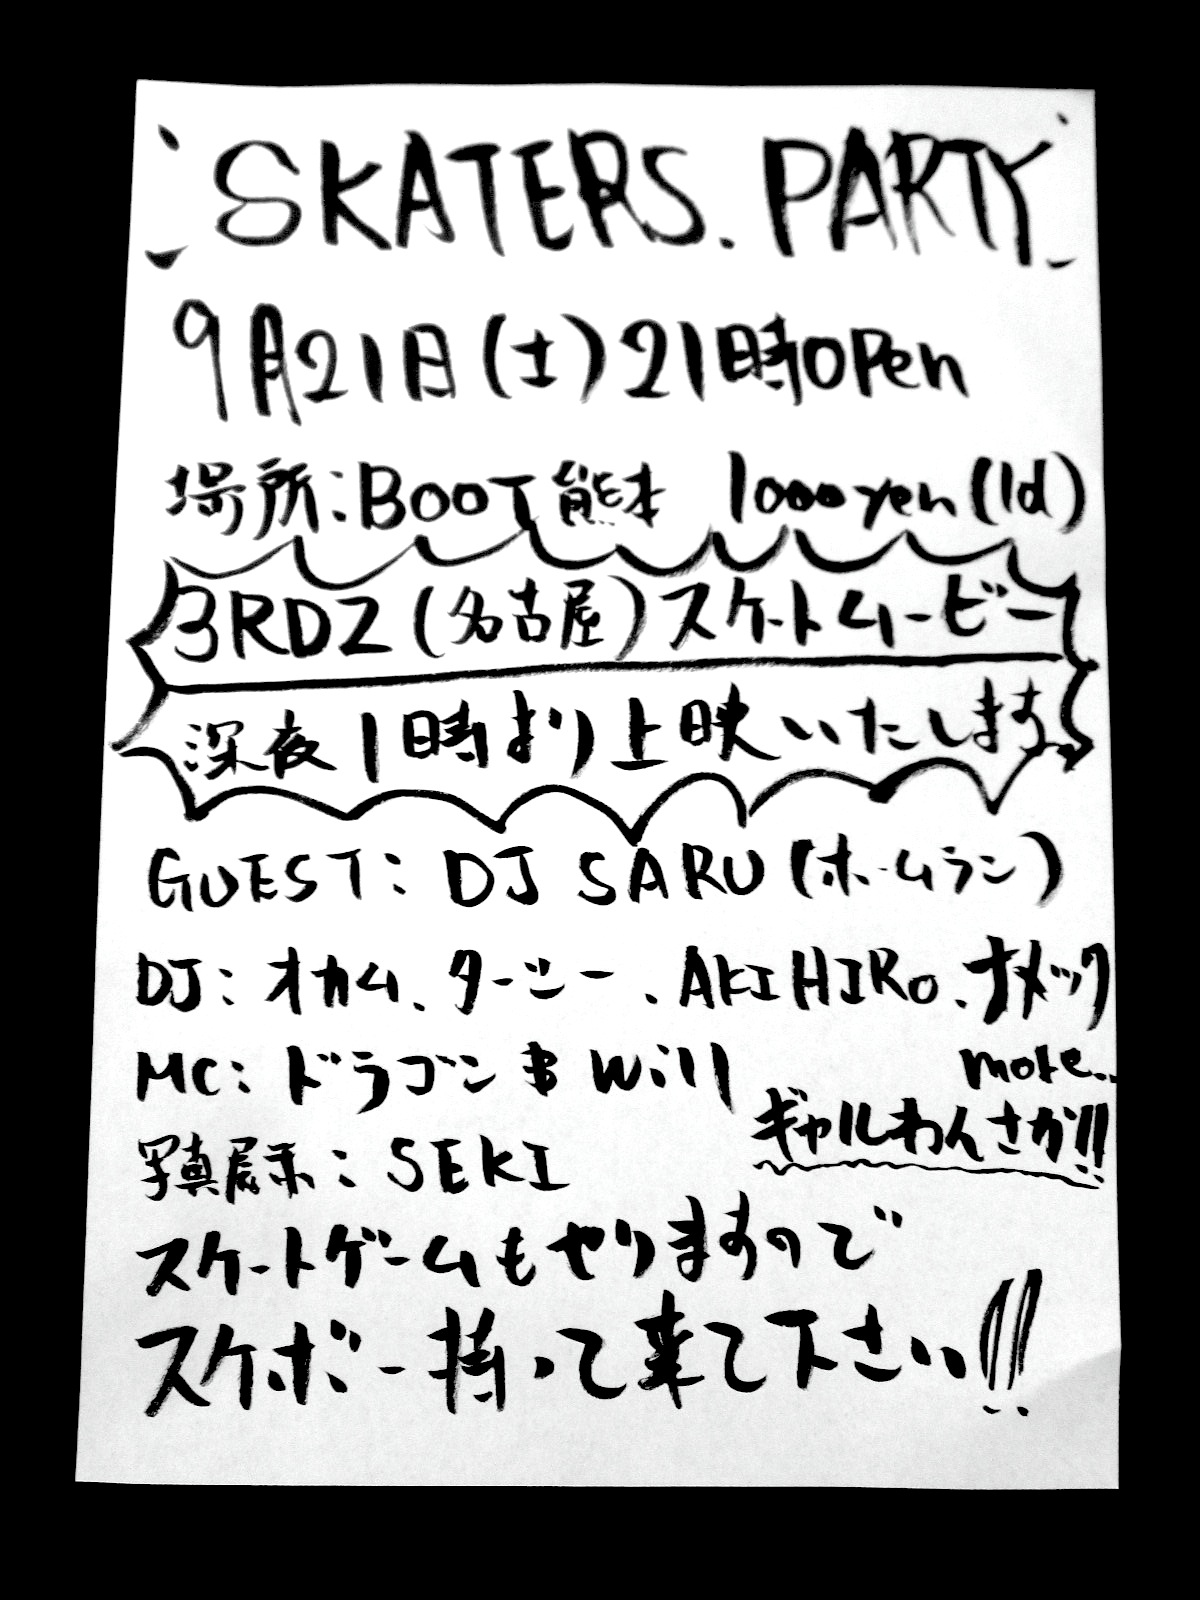 SKATERS. PARTY
9月21日(土)21時open
場所:BOOT熊本 1000yen(1d)
3RDZ(名古屋)スケートムービー
深夜1時より上映いたします
GUEST: DJ SARU (ホームラン)
DJ: オカム、タージー、AKIHIRO、ナメック
more..
MC: ドラゴン & Will
ギャルわんさか!!
写真展示: SEKI
スケートゲームもやりますので
スケボー持って来て下さい!!!